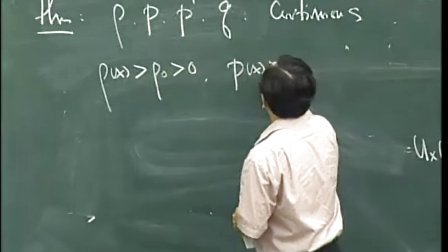 thm: ρ, p, p', q : Continuous
ρ(x) > ρ₀ > 0, p(x)
= (U_x